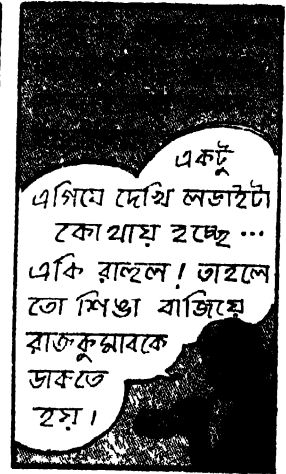 একটু
এগিয়ে দেখি লড়াইটা
কোথায় হচ্ছে ···
একি রাহুল! তাহলে
তো শিঙা বাজিয়ে
রাজকুমারকে
ডাকতে
হয়।